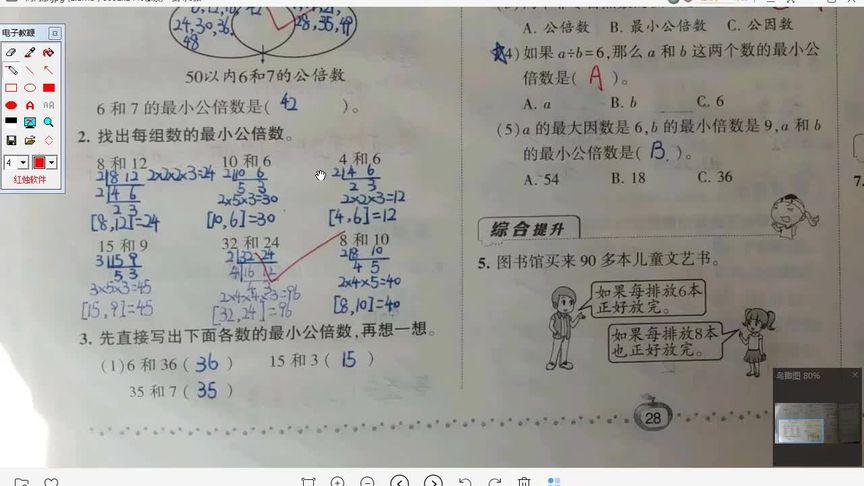 电子教鞭
4
红烛软件
24,30,36,
48
42
28,35,49
50以内6和7的公倍数
6 和 7 的最小公倍数是( 42 )。
2. 找出每组数的最小公倍数。
8 和 12 10 和 6 4 和 6
2 8 12 2×2×2×3=24 2 10 6 2 4 6
2 4 6 5 3 2 3
2 3 2×5×3=30 2×2×3=12
[8,12]=24 [10,6]=30 [4,6]=12
15 和 9 32 和 24 8 和 10
3 15 9 2 32 24 2 8 10
5 3 4 16 12 4 5
3×5×3=45 4 3 2×4×5=40
2×4×4×3=96
[15,9]=45 [32,24]=96 [8,10]=40
3. 先直接写出下面各数的最小公倍数,再想一想。
(1)6 和 36( 36 ) 15 和 3( 15 )
35 和 7( 35 )
A. 公倍数 B. 最小公倍数 C. 公因数
(4)如果 a÷b=6,那么 a 和 b 这两个数的最小公
倍数是( A )。
A. a B. b C. 6
(5)a 的最大因数是 6,b 的最小倍数是 9,a 和 b
的最小公倍数是( B )。
A. 54 B. 18 C. 36
7.
综合提升
5. 图书馆买来 90 多本儿童文艺书。
如果每排放6本
正好放完。
如果每排放8本
也正好放完。
28
鸟瞰图 80%